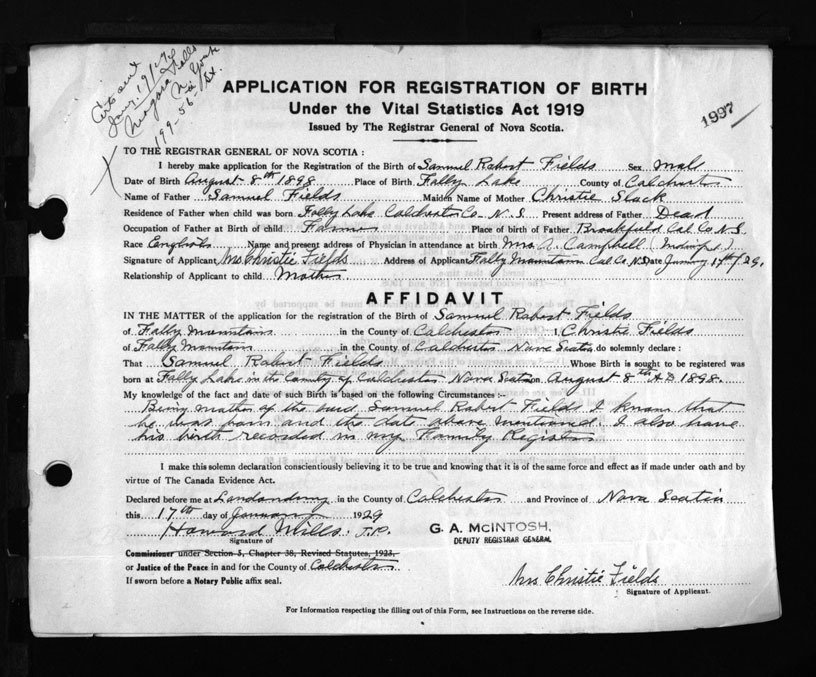 Jan. 19/29
Niagara Falls
New York
199-56-St.
1997
APPLICATION FOR REGISTRATION OF BIRTH
Under the Vital Statistics Act 1919
Issued by The Registrar General of Nova Scotia.
TO THE REGISTRAR GENERAL OF NOVA SCOTIA :
I hereby make application for the Registration of the Birth of Samuel Robert Fields Sex Male
Date of Birth August 8th 1898 Place of Birth Folly Lake County of Colchester
Name of Father Samuel Fields Maiden Name of Mother Christie Slack
Residence of Father when child was born Folly Lake Colchester Co. N.S. Present address of Father Dead
Occupation of Father at Birth of child Farmer Place of birth of Father Brookfield Col. Co N.S.
Race English Name and present address of Physician in attendance at birth Mrs. A. Campbell (Midwife)
Signature of Applicant Mrs Christie Fields Address of Applicant Folly Mountain Col. Co. N.S. Date January 17th/29.
Relationship of Applicant to child Mother
AFFIDAVIT
IN THE MATTER of the application for the registration of the Birth of Samuel Robert Fields
of Folly Mountain in the County of Colchester I, Christie Fields
of Folly Mountain in the County of Colchester Nova Scotia, do solemnly declare :
That Samuel Robert Fields Whose Birth is sought to be registered was
born at Folly Lake in the County of Colchester Nova Scotia on August 8th A.D 1898.
My knowledge of the fact and date of such Birth is based on the following Circumstances :-
Being mother of the said Samuel Robert Fields I know that
he was born and the date above mentioned. I also have
his birth recorded in my Family Register
I make this solemn declaration conscientiously believing it to be true and knowing that it is of the same force and effect as if made under oath and by
virtue of The Canada Evidence Act.
Declared before me at Londonderry in the County of Colchester and Province of Nova Scotia
this 17th day of January 1929
Howard Mills J.P.
G. A. McINTOSH,
DEPUTY REGISTRAR GENERAL
Signature of
Commissioner under Section 5, Chapter 38, Revised Statutes, 1923.
or Justice of the Peace in and for the County of Colchester
If sworn before a Notary Public affix seal.
Mrs Christie Fields
Signature of Applicant.
For Information respecting the filling out of this Form, see Instructions on the reverse side.